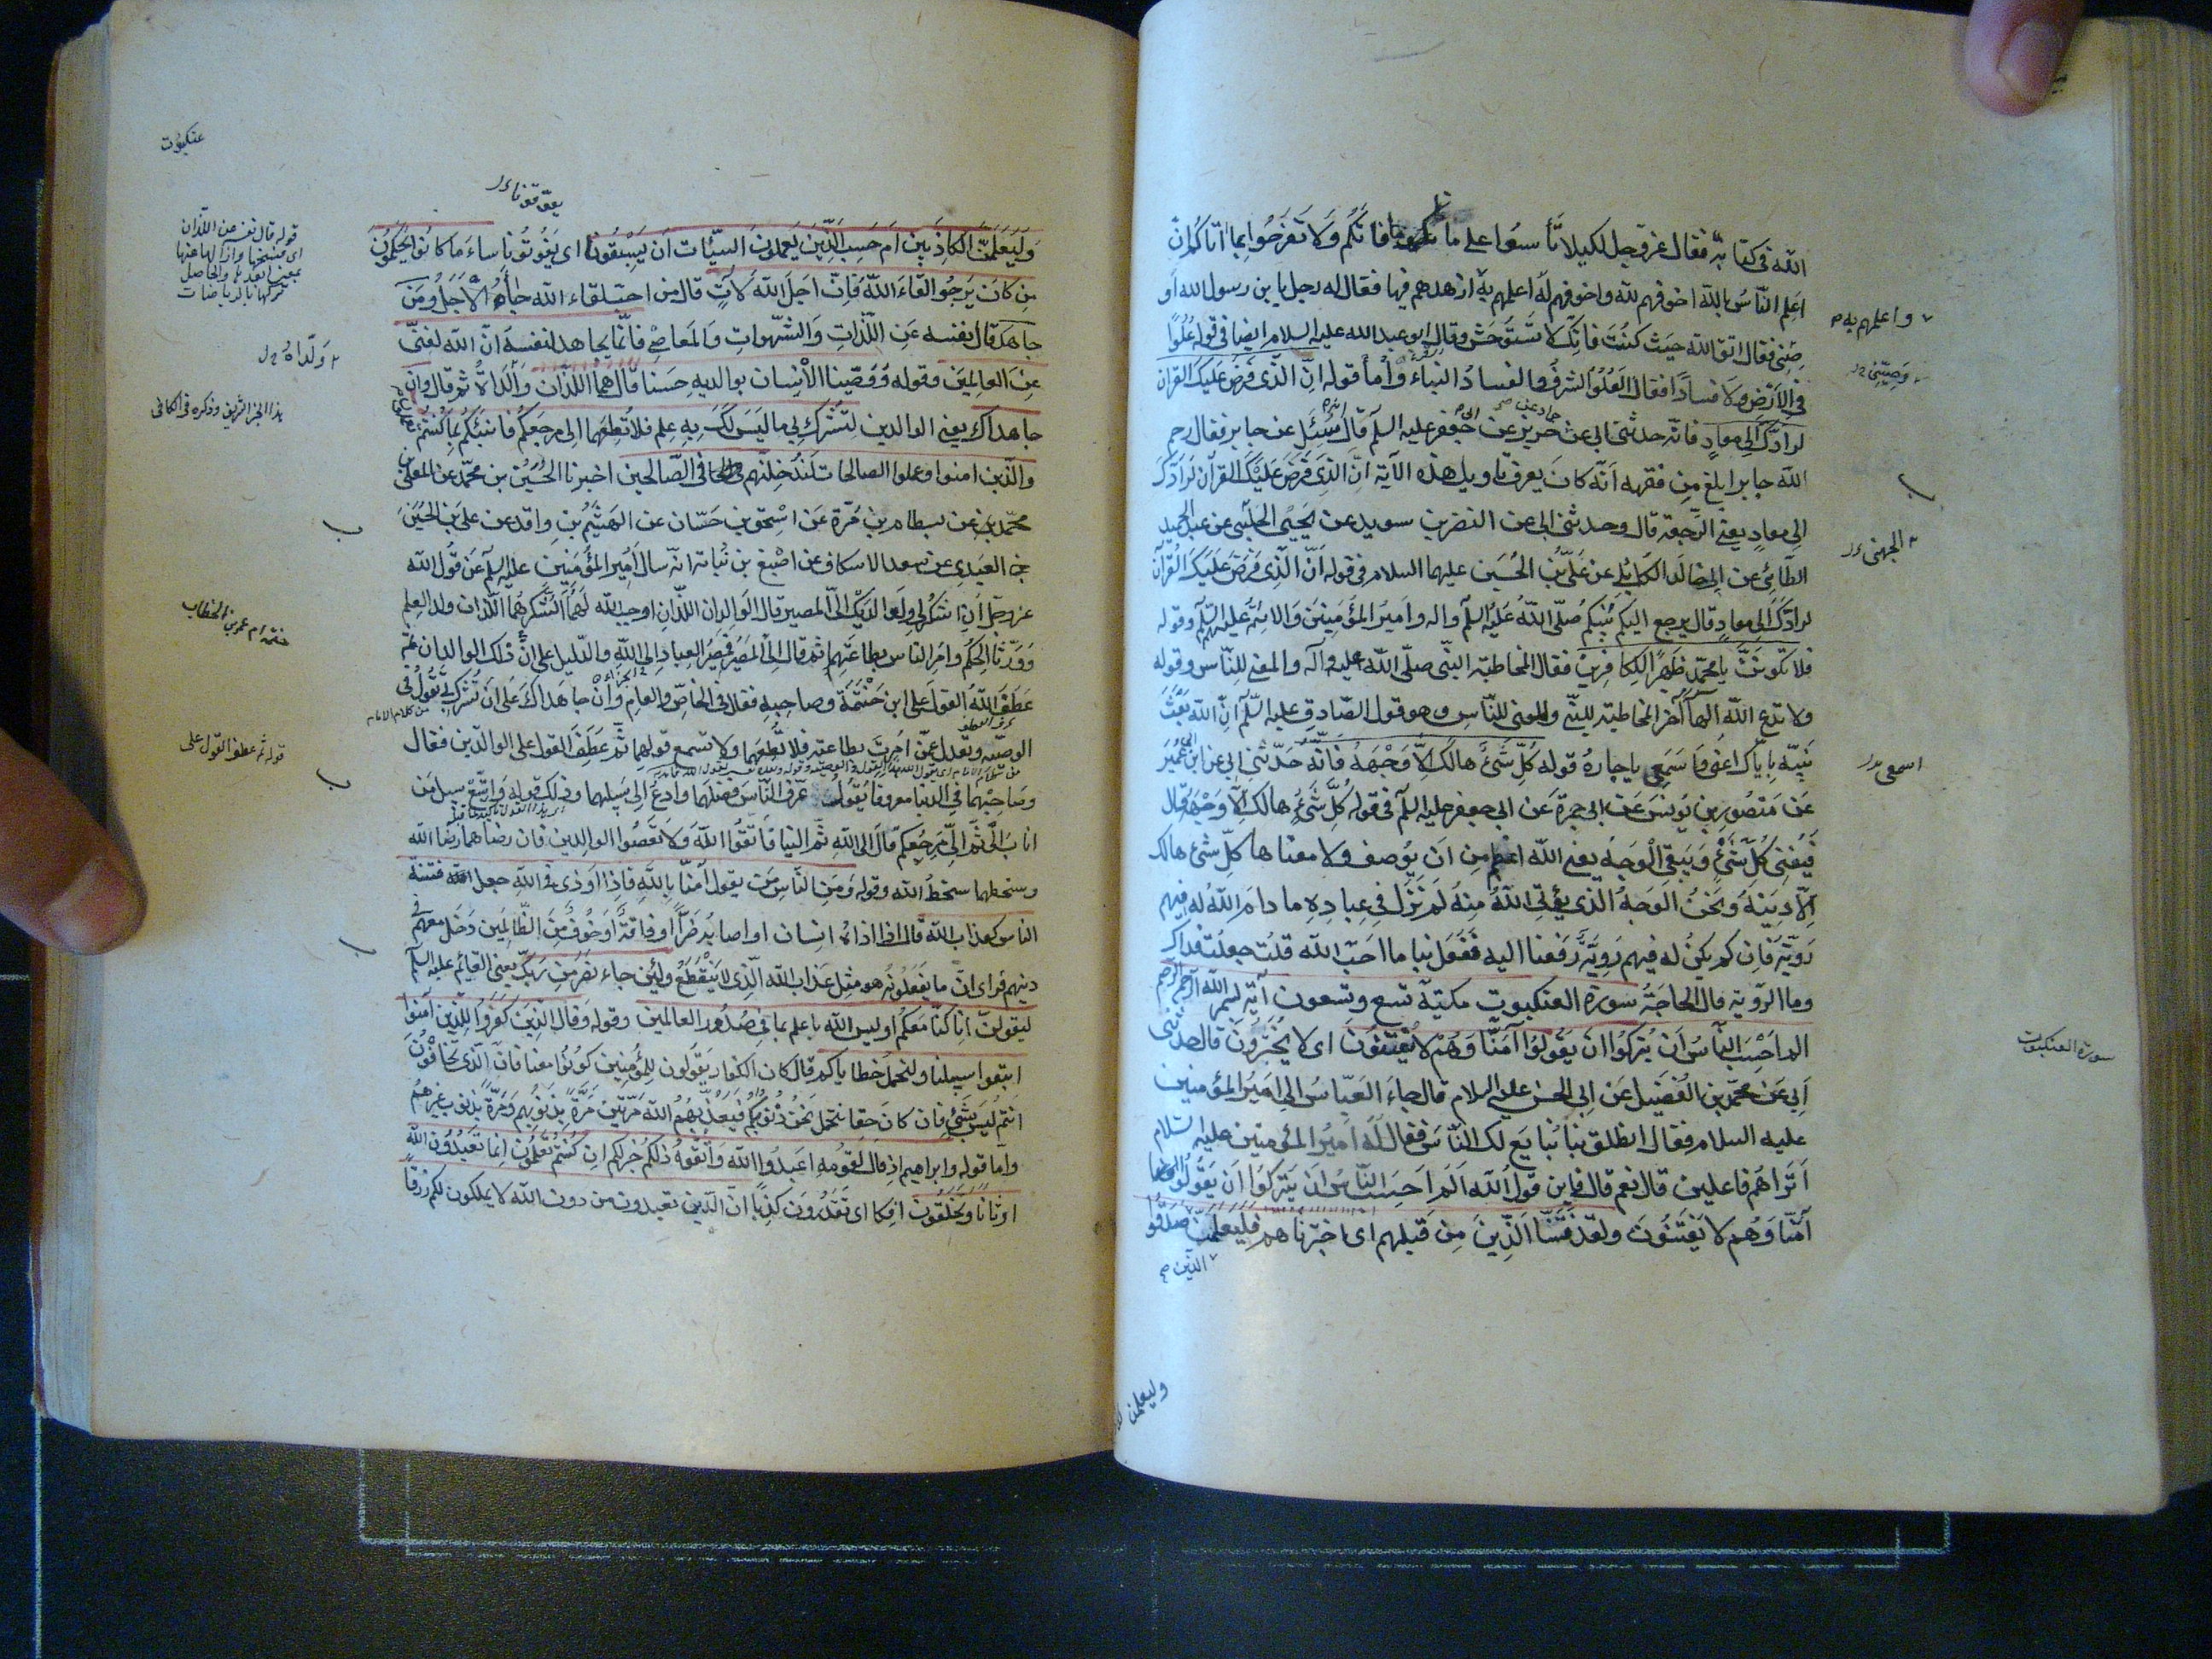 الله في كتابه فقال عز وجل لكيلا تأسوا على ما فاتكم ولا تفرحوا بما آتاكم ان
اعلم الناس بالله اخوفهم لله واخوفهم له اعلمهم به ازهدهم فيها فقال له رجل يا بن رسول الله او
صني فقال اتق الله حيث كنت فانك لا تستوحش وقال ابو عبد الله عليه السلام ايضا في قوله علوا
في الارض ولا فسادا فقال العلو الشرف والفساد النباء واما قوله ان الذي فرض عليك القران
لرادك الى معاد فانه حدثني ابي عن حريز عن ابي جعفر عليه السلم قال سئل عن جابر فقال رحم
الله جابرا بلغ من فقهه انه كان يعرف تاويل هذه الآية ان الذي فرض عليك القرآن لرادك
الى معاد يعني الرجعة قال وحدثني ابي عن النضر بن سويد عن يحيى الحلبي عن عبد الحميد
الطائي عن ابي خالد الكابلي عن علي بن الحسين عليهما السلام في قوله ان الذي فرض عليك القرآن
لرادك الى معاد قال يرجع اليكم نبيكم صلى الله عليه السلم واله وامير المؤمنين والائمة عليهم السلم وقوله
فلا تكونن يا محمد ظهيرا للكافرين فقال المخاطبة النبي صلى الله عليه وآله والمعني للناس وقوله
ولا تدع الله الها آخر المخاطبة للنبي والمعني للناس وهو قول الصادق عليه السلم ان الله بعث
نبيه باياك اعني واسمعي يا جاره قوله كل شئ هالك الا وجهه فانه حدثني ابي عن ابن ابي عمير
عن منصور بن يونس عن ابي حمزة عن ابي جعفر عليه السلم في قوله كل شئ هالك الا وجهه قال
فيفنى كل شئ ويبقى الوجه يعني الله اعظم من ان يوصف ولا معناها كل شئ هالك
الا دينه ونحن الوجه الذي يؤتى الله منه لم نزل في عباده ما دام الله له فيهم
روية فان لم يكن له فيهم روية رفعنا اليه ففعل بنا ما احب الله قلت جعلت فداك
وما الروية قال الحاجة سورة العنكبوت مكية تسع وتسعون آية بسم الله الرحمن الرحيم
الم احسب الناس ان يتركوا ان يقولوا آمنا وهم لا يفتنون اى لا يختبرون قال حدثني
ابي عن محمد بن الفضيل عن ابي الحسن عليه السلام قال جاء العباس الى امير المؤمنين
عليه السلام فقال انطلق بنا نبايع لك الناس فقال له امير المؤمنين عليه السلام
اتراهم فاعلين قال نعم قال فاين قول الله الم احسب الناس ان يتركوا ان يقولوا
آمنا وهم لا يفتنون ولقد فتنا الذين من قبلهم اى اختبرناهم فليعلمن صدقوا
الذين
وليعلمن
واعلمهم به
وصيني
الجهني
اسمعى
سورة العنكبوت
عنكبوت
وليعلمن الكاذبين ام حسب الذين يعملون السيئات ان يسبقونا اى يفوتونا ساء ما كانوا يحكمون
من كان يرجو القاء الله فان اجل الله لآت قال من احب لقاء الله جاءه الاجل ومن
جاهد قال نفسه عن اللذات والشهوات والمعاصي فانما يجاهد لنفسه ان الله لغني
عن العالمين وقوله ووصينا الانسان بوالديه حسنا قال هما اللذان ولداه ثم قال وان
جاهداك يعني الوالدين لتشرك بي ما ليس لك به علم فلا تطعهما الي مرجعكم فانبئكم بما كنتم
والذين امنوا وعملوا الصالحات لندخلنهم في الصالحين اخبرنا الحسين بن محمد عن المعلى بن
محمد عن بسطام بن مرة عن اسحق بن حسان عن الهيثم بن واقد عن علي بن الحسين
العبدي عن سعد الاسكاف عن اصبغ بن نباتة انه سال امير المؤمنين عليه السلم عن قول الله
عز وجل ان اشكر لي ولوالديك الي المصير قال الوالدان اللذان اوجب الله لهما الشكر هما اللذان ولدا العلم
وورثا الحكم وامر الناس بطاعتهما ثم قال الي المصير فمصير العباد الى الله والدليل على ان ذلك الوالدان ثم
عطف الله القول على ابن حنتمة وصاحبه فقال في الخاص والعام وان جاهداك على ان تشرك بي يقول في
الوصية وتعدل عمن امرت بطاعته فلا تطعهما ولا تسمع قولهما ثم عطف القول على الوالدين فقال
وصاحبهما في الدنيا معروفا يقول عرف الناس فضلهما وادع الى سبيلهما وذلك قوله واتبع سبيل من
اناب الي ثم الي مرجعكم قال الى الله ثم الينا فاتقوا الله ولا تعصوا الوالدين فان رضاهما رضا الله
وسخطهما سخط الله وقوله ومن الناس من يقول آمنا بالله فاذا اوذى في الله جعل فتنة
الناس كعذاب الله قال اذا اذاه انسان او اصابه ضر او فاقة او خوف من الظالمين دخل معهم في
دينهم فراى ان ما يفعلونه هو مثل عذاب الله الذي لا ينقطع ولئن جاء نصر من ربك يعني القائم عليه السلم
ليقولن انا كنا معكم اوليس الله باعلم بما في صدور العالمين وقوله وقال الذين كفروا للذين آمنوا
اتبعوا سبيلنا ولنحمل خطاياكم قال كان الكفار يقولون للمؤمنين كونوا معنا فان الذي تخافون
انتم ليس بشئ فان كان حقا نحمل نحن ذنوبكم فيعذبهم الله مرتين مرة بذنوبهم ومرة بذنوب غيرهم
واما قوله وابراهيم اذ قال لقومه اعبدوا الله واتقوه ذلكم خير لكم ان كنتم تعلمون انما تعبدون من دون الله
اوثانا وتخلقون افكا اى تقدرون كذبا ان الذين تعبدون من دون الله لا يملكون لكم رزقا
قوله قال نفسه عن اللذان
ولداه
هذا الخبر الشريف وذكره في الكافي
حنتمه ام عمر بن الخطاب
قوله ثم عطف القول على